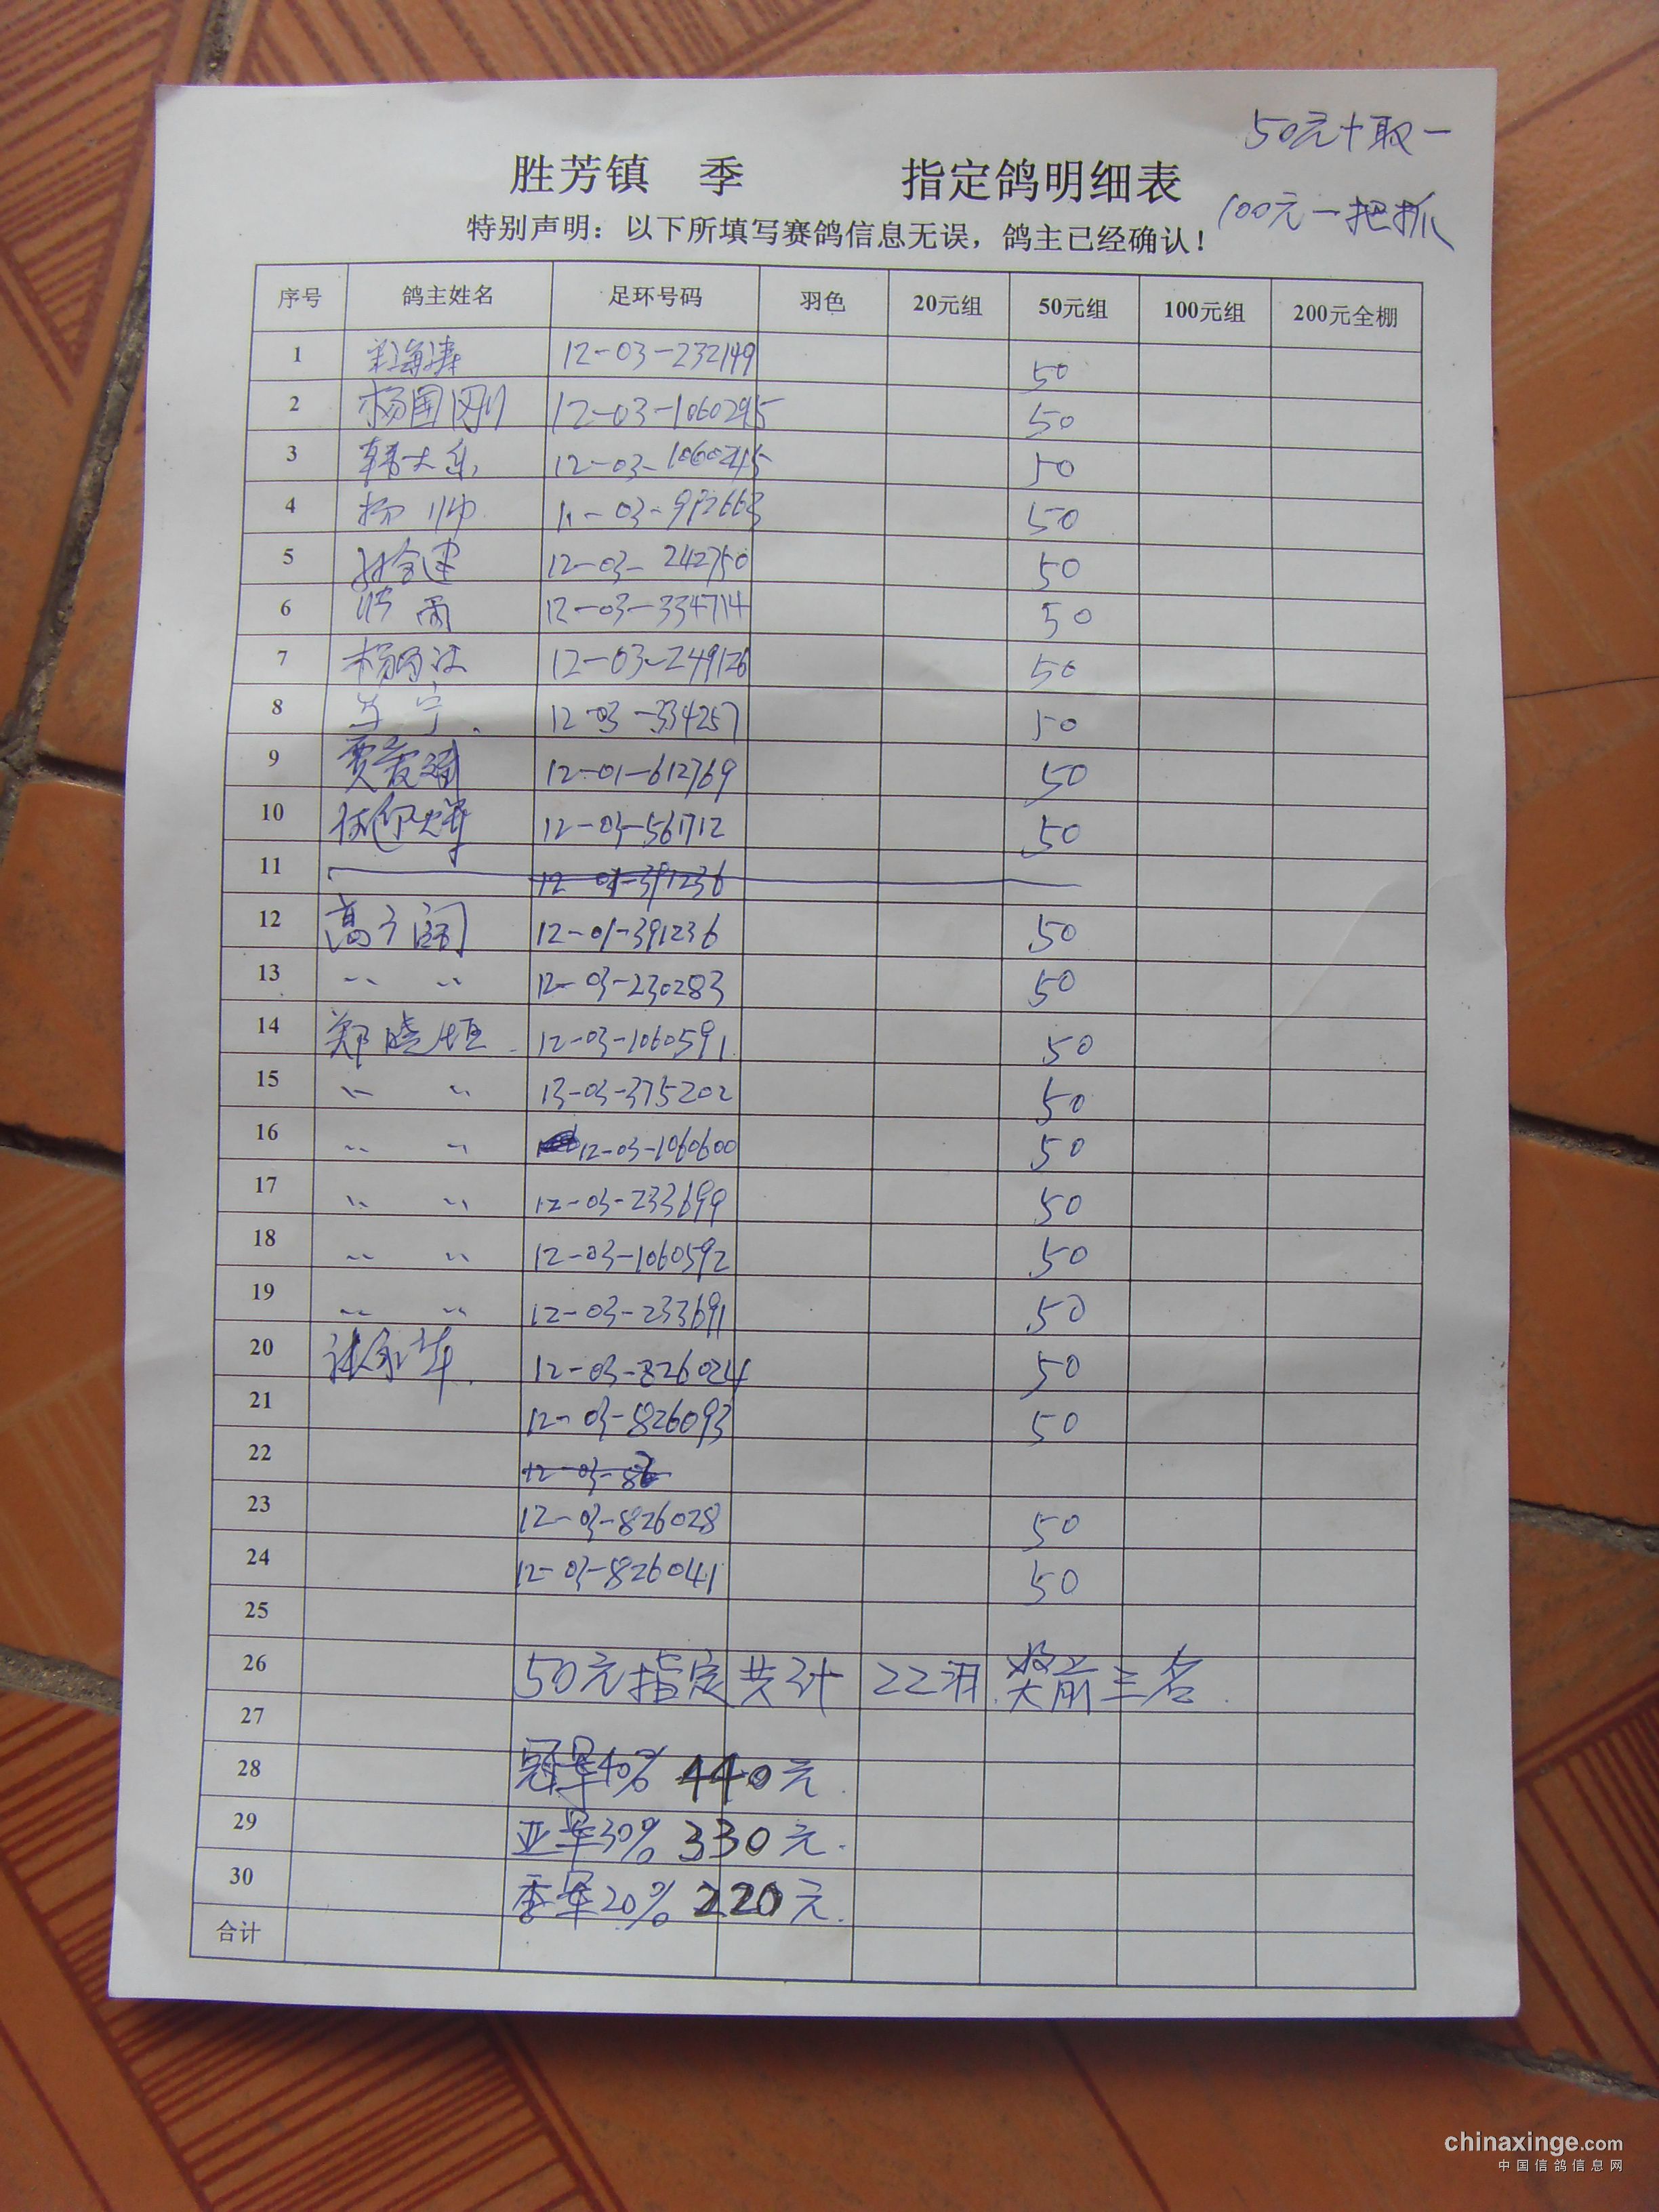 50元十取一
胜芳镇 季 指定鸽明细表
100元一把抓
特别声明：以下所填写赛鸽信息无误，鸽主已经确认！
序号 鸽主姓名 足环号码 羽色 20元组 50元组 100元组 200元全棚
1 12-03-232149 50
2 杨国刚 12-03-1060295 50
3 韩大乐 12-03-1060245 50
4 杨帅 11-03-993663 50
5 12-03-242750 50
6 12-03-334714 50
7 12-03-249126 50
8 宁 12-03-334257 50
9 贾 12-01-612769 50
10 12-03-561712 50
11 12-01-391236
12 高子 12-01-391236 50
13 〃 〃 12-03-230283 50
14 郑晓恒 12-03-1060591 50
15 〃 〃 13-03-375202 50
16 〃 〃 12-03-1060600 50
17 〃 〃 12-03-233699 50
18 〃 〃 12-03-1060592 50
19 〃 〃 12-03-233691 50
20 张永华 12-03-826024 50
21 12-03-826093 50
22 12-03-86
23 12-03-826028 50
24 12-03-826041 50
25
26 50元指定共计 22羽.奖前三名.
27
28 冠军40% 440元.
29 亚军30% 330元.
30 季军20% 220元.
合计
chinaxinge.com
中国信鸽信息网